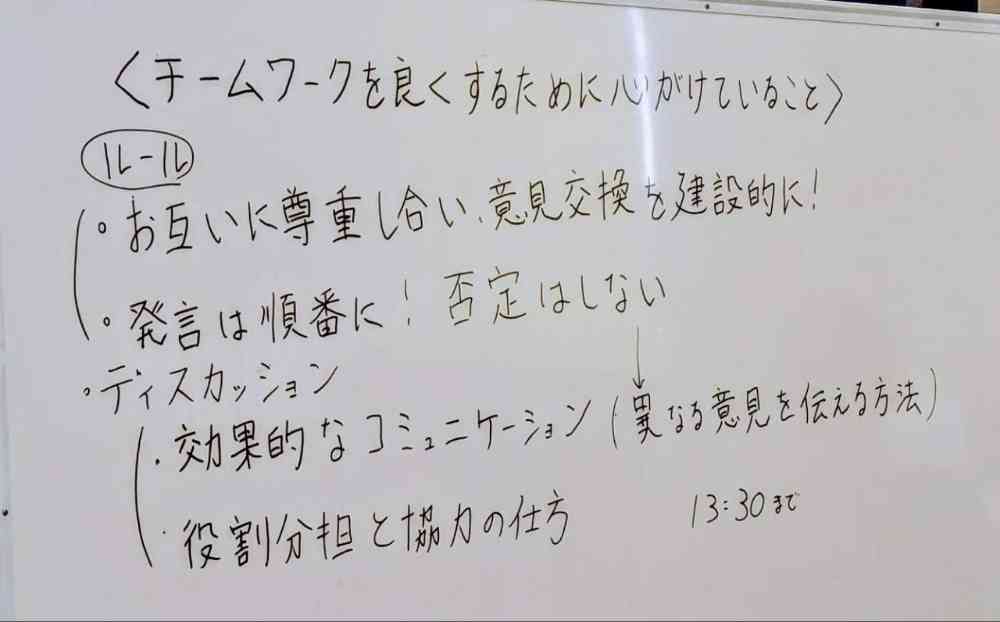 〈チームワークを良くするために心がけていること〉
ルール
・お互いに尊重し合い、意見交換を建設的に!
・発言は順番に! 否定はしない
・ディスカッション
・効果的なコミュニケーション (異なる意見を伝える方法)
・役割分担と協力の仕方 13:30まで